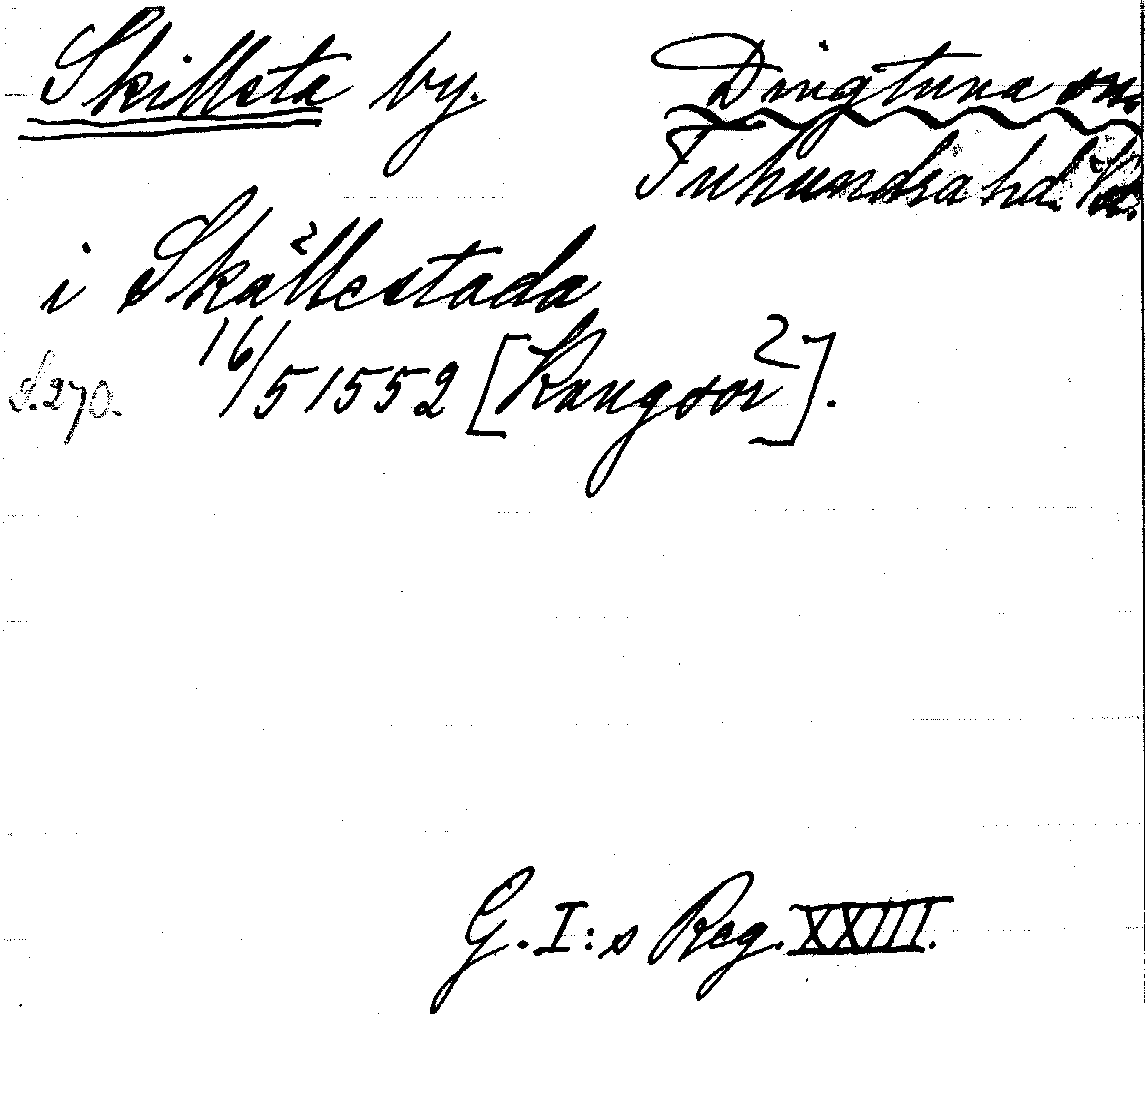 Skillsta by. Dingtuna sn.
Tuhundra hd. Vm.
i Skällestada
s. 270. 16/5 1552 [Kungsör].
G. I:s Reg. XXIII.